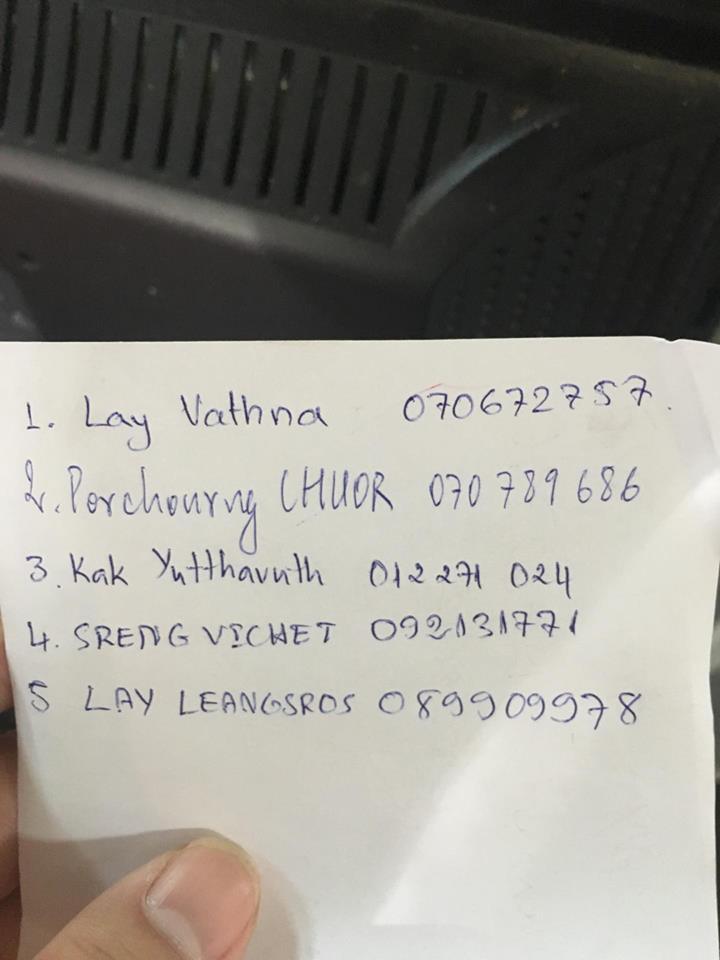 1. Lay Vathna 070672757.
2. Porchourng CHUOR 070 789 686
3. Kak Yutthavuth 012 271 024
4. SRENG VICHET 092131771
5 LAY LEANGSROS 089909978